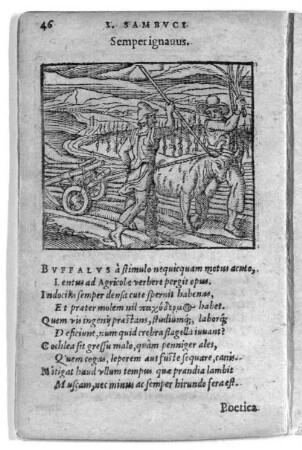 46 I. SAMBVCI
Semper ignauus.
BVFFALVS à stimulo nequicquam motus acuto,
Lentus ad Agricolæ verbere pergit opus.
Indocilis semper densa cute spernit habenas,
Et præter molem nil habet.
Quem vis ingenij præstans, studiumq́, laborq́
Deficiunt, num quid crebra flagella iuuant?
Cochlea sit gressu malo, quàm penniger ales,
Quem cogas, leporem aut fuste sequare, canis.
Mitigat haud vllum tempus quæ prandia lambit
Muscam, nec minus ac semper hirundo fera est.
Poetica